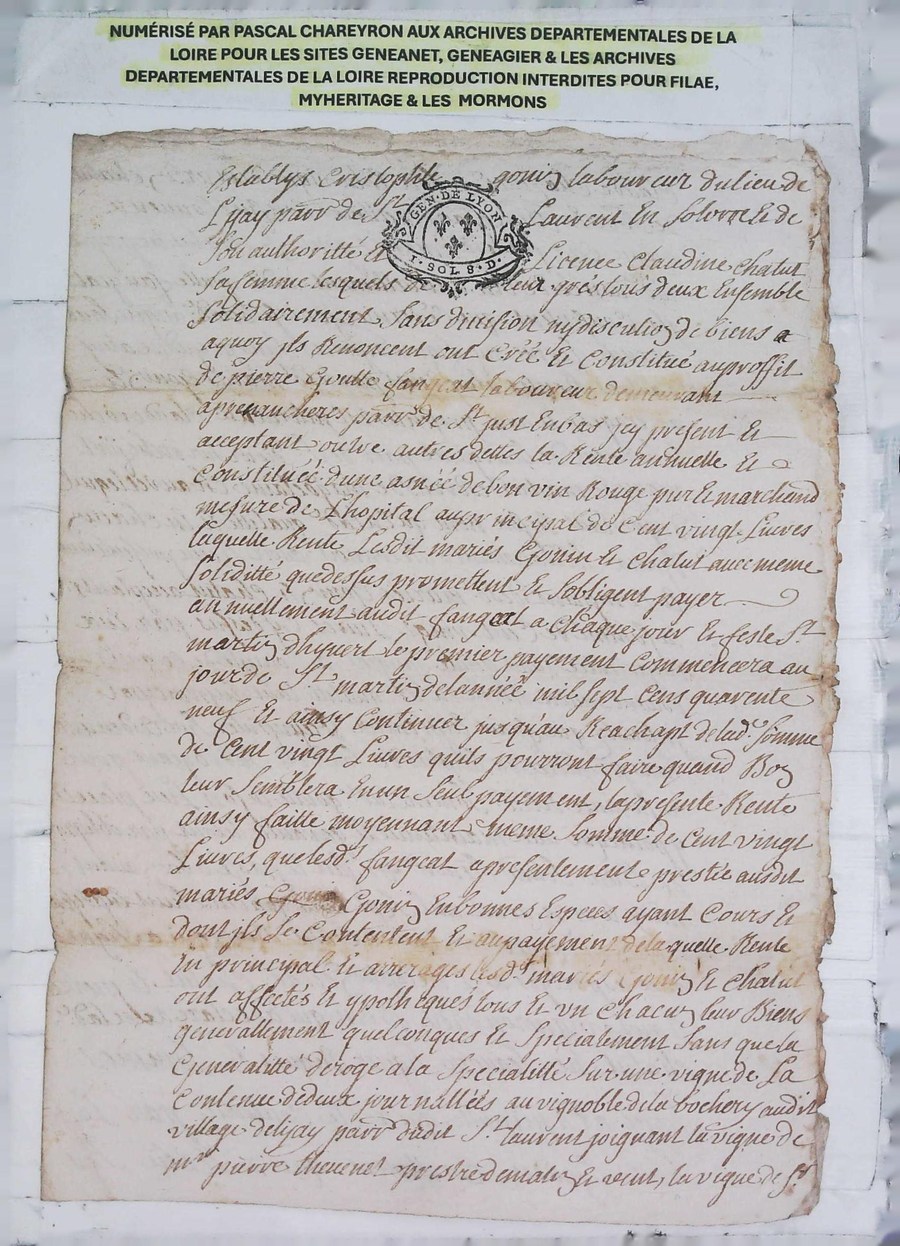 NUMÉRISÉ PAR PASCAL CHAREYRON AUX ARCHIVES DEPARTEMENTALES DE LA
LOIRE POUR LES SITES GENEANET, GENEAGIER & LES ARCHIVES
DEPARTEMENTALES DE LA LOIRE REPRODUCTION INTERDITES POUR FILAE,
MYHERITAGE & LES MORMONS
Establys Cristophle gonin laboureur du lieu de
Lijay parr de St Laurent En Solore Et de
GEN·DE LYON
1·SOL 8·D·
Son authoritté Et Licence Claudine Chalut
sa femme lesquels de leur gré tous deux Ensemble
Solidairement sans division ny discution de biens a
aquoy jls Renoncent ont Créé Et Constitué auproffit
de pierre Goutte fangeat laboureur demeurant
parr de St just Enbas jcy présent Et
acceptant outre autres delles la Rente annuelle Et
Constituéé dune asnéé de bon vin Rouge pur Et marchand
mesure de Lhopital auprincipal de Cent vingt Livres
laquelle Rente Lesdit mariés Gonin Et Chalut avec meme
soliditté que dessus promettent Et sobligent payer
annuellement audit fangeat a Chaque jour Et feste St
martin dhyvert le premier payement Commencera au
jour de St martin de lannéé mil sept Cens quarente
neuf Et ainsy Continuer jusqu'au Reachapt de lad.e Somme
de Cent vingt Livres quils pourront faire quand Bon
leur Semblera En un Seul payement, la presente Rente
ainsy faitte moyennant meme Somme de Cent vingt
Livres, que led. fangeat a presentement prestée ausdit
mariés Gonin Gonin En bonnes Especes ayant Cours Et
dont jls Se Contentent Et au payement de laquelle Rente
En principal Et arrerages lesd. mariés Gonin Et Chalut
ont affectés Et ypothequés tous Et un Chacun leur Biens
generallement quelconques Et Specialement Sans que la
Generalitté deroge a la Specialitté Sur une vigne de La
Contenue de deux journalléés au vignoble de la bochery audit
village de lijay parr dudit St laurent joignant la vigne de
mre pierre thevenet prestre de matin Et vent, la vigne de Sr